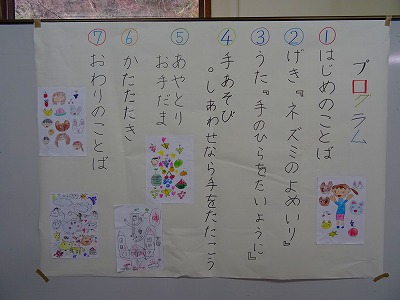 プログラム
①はじめのことば
②げき『ネズミのよめいり』
③うた『手のひらをたいように』
④手あそび
。しあわせなら手をたたこう
⑤あやとり
お手だま
⑥かたたたき
⑦おわりのことば